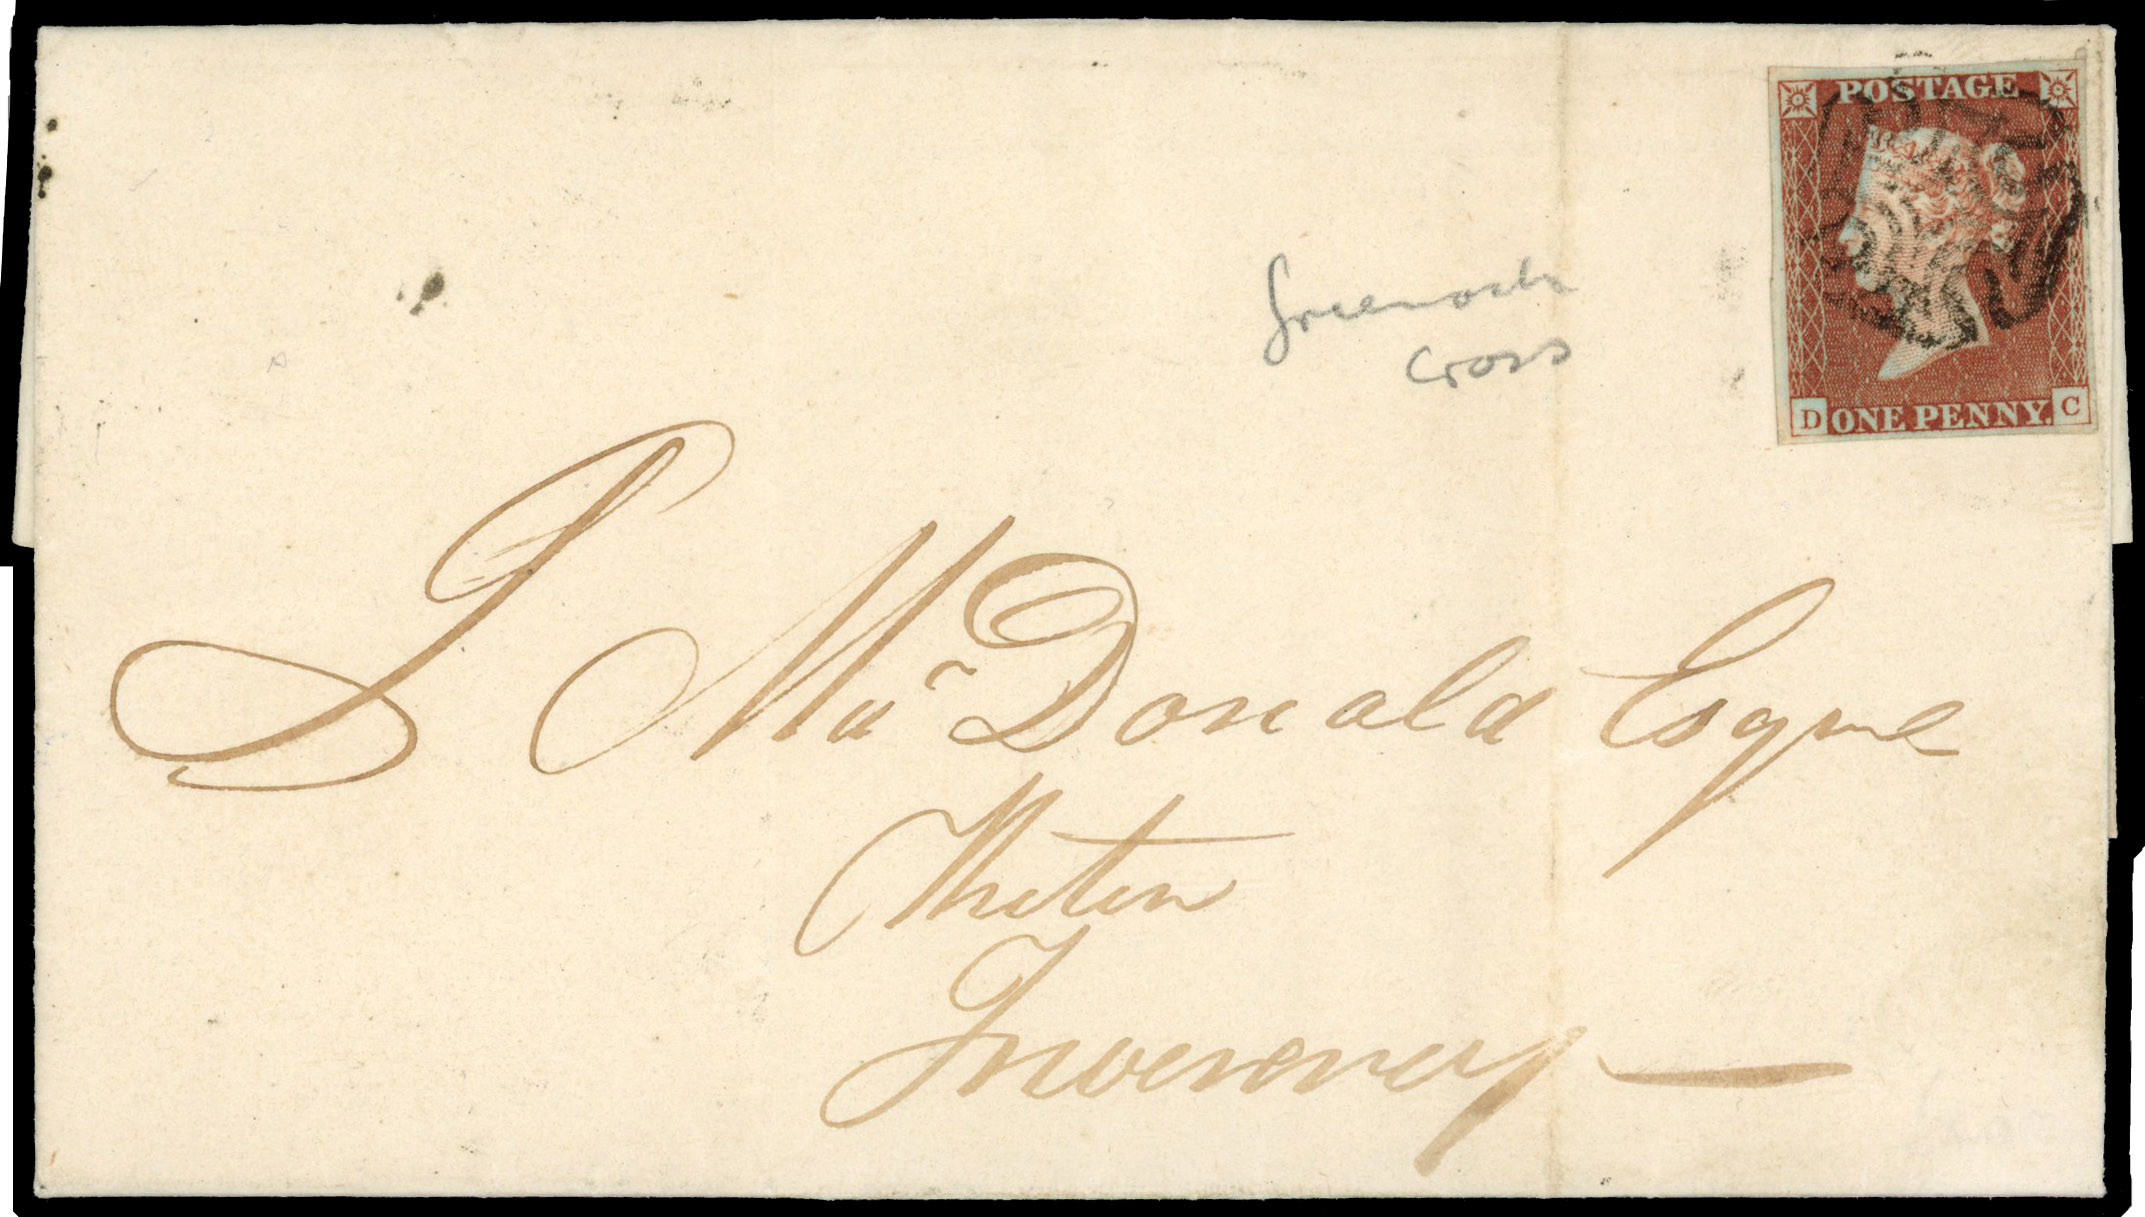 POSTAGE
D ONE PENNY. C
Greenock
cross
Mac Donald Esqre
Inverness